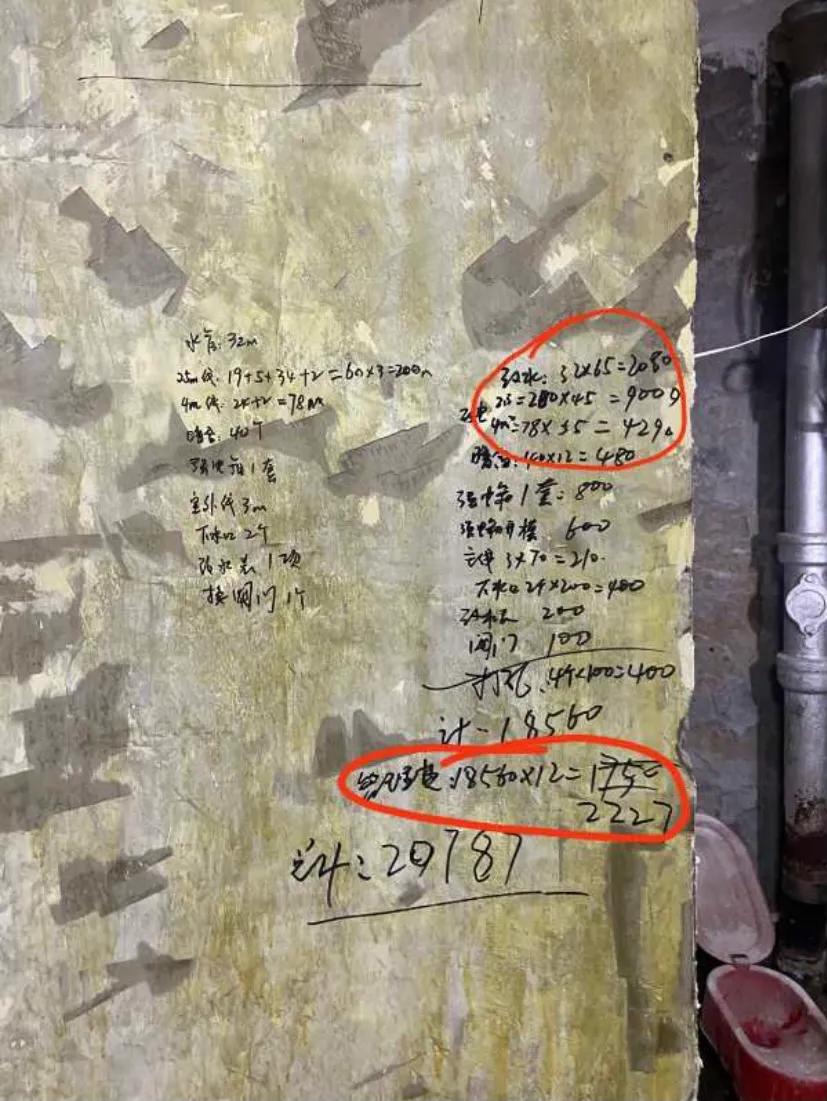 水管: 32m
25m线: 19+5+34+2=60×3=200m
4m线: 24+2=78m
暗盒: 40个
强电箱1套
室外线3m
下水口2个
改水表1项
换阀门1个
改水: 32×65=2080
25=200×45=9000
4m²=78×55=4290
暗盒: 40×12=480
强电箱1套: 800
强电箱开槽 600
3×70=210
下水口2个×200=400
200
阀门 100
打孔: 4个×100=400
计-18560
管理费: 18560×12=
2227
计: 20787